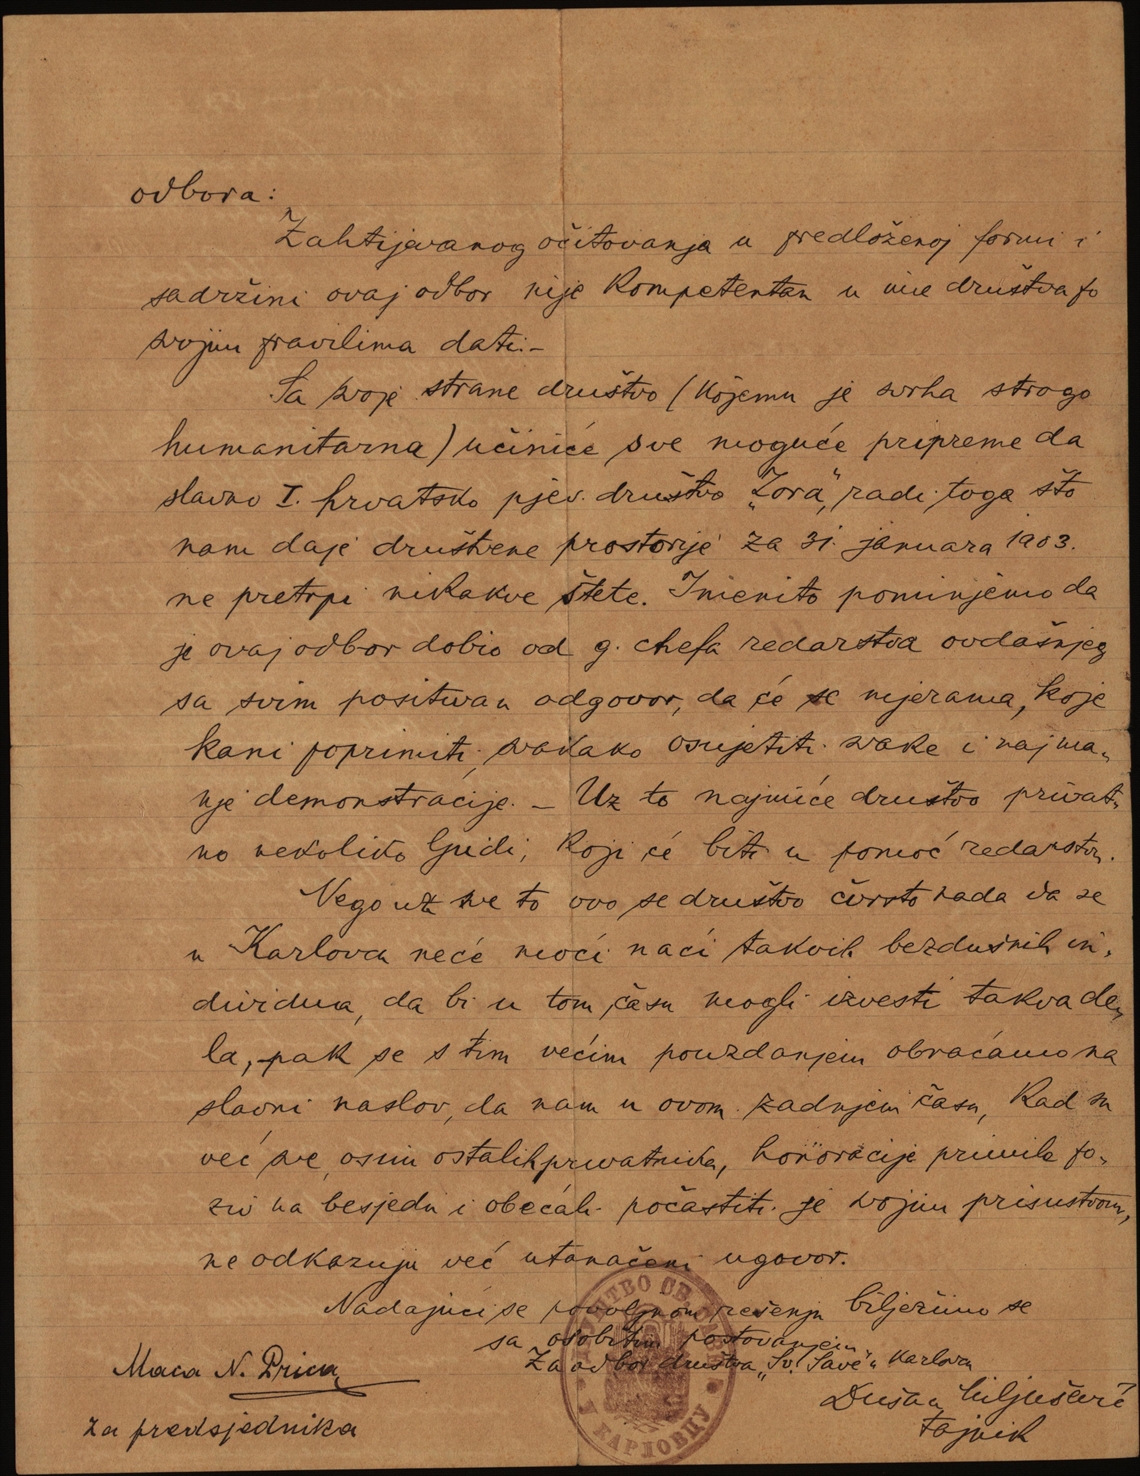 odbora:
Zahtijevanog očitovanja u predloženoj formi i
sadržini ovaj odbor nije kompetentan u ime društva po
svojim pravilima dati.-
Sa svoje strane društvo (kojemu je svrha strogo
humanitarna) učiniće sve moguće pripreme da
slavno I. hrvatsko pjev. društvo „Zora", radi toga što
nam daje društvene prostorije za 31. januara 1903.
ne pretrpi nikakve štete. Imenito pominjemo da
je ovaj odbor dobio od g. chefa redarstva ovdašnjeg
sa svim positivan odgovor, da će se mjerama, koje
kani poprimiti svakako osujetiti svake i najma-
nje demonstracije. - Uz to najmiće društvo privat-
no nekoliko ljudi, koji će biti u pomoć redarstvu.
Nego uz sve to ovo se društvo čvrsto nada da se
u Karlovcu neće moći naći takvih bezdušnih in-
dividua, da bi u tom času mogli izvesti takva de-
la, pak se s tim većim pouzdanjem obraćamo na
slavni naslov, da nam u ovom zadnjem času, kad su
već sve, osim ostalih privatnika, honoracije primile po-
ziv na besjedu i obećali počastiti je svojim prisustvom,
ne odkazuju već utanačeni ugovor.
Nadajući se povoljnom rešenju biljezimo se
sa osobitim postovanjem
Za odbor društva „Sv. Save" u Karlovcu
Maca N. Prica
za predsjednika
Dušan
tajnik
КАРЛОВЦУ